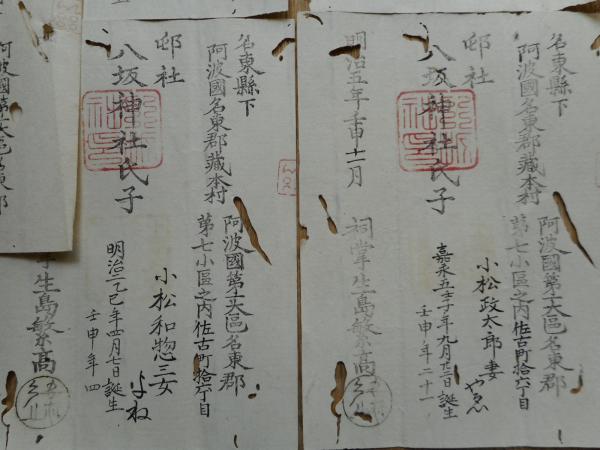 名東縣下
阿波國名東郡藏本村
阿波國第大區名東郡
第七小區之内佐古町拾六丁目
邸社
八坂神社氏子
小松政太郎妻
嘉永五壬子年九月 誕生
壬申年二十一
明治五年壬申十一月
祠掌生島繁高
名東縣下
阿波國名東郡藏本村
阿波國第大區名東郡
第七小區之内佐古町拾六丁目
邸社
八坂神社氏子
小松和惣三女
よね
明治二己巳年四月七日誕生
壬申年四
生島繁高